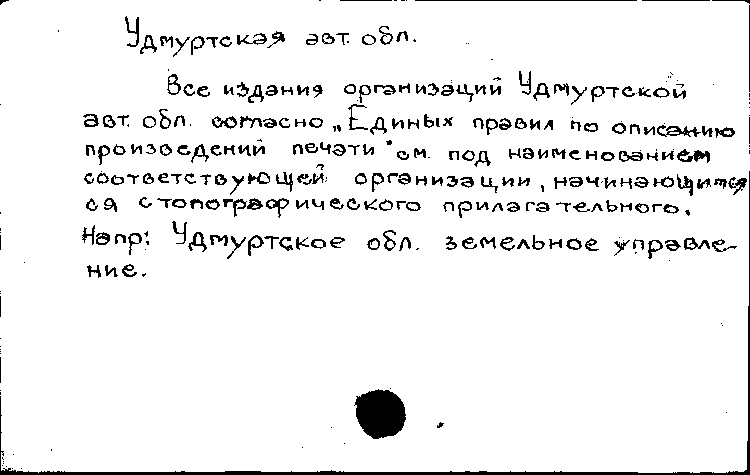 Удмуртская авт. обл.
Все издания организаций Удмуртской
авт. обл. согласно „Единых правил по описанию
произведений печати" см. под наименованием
соответствующей организации, начинающимся
ся с топографического прилагательного.
Напр: Удмуртское обл. земельное управле-
ние.